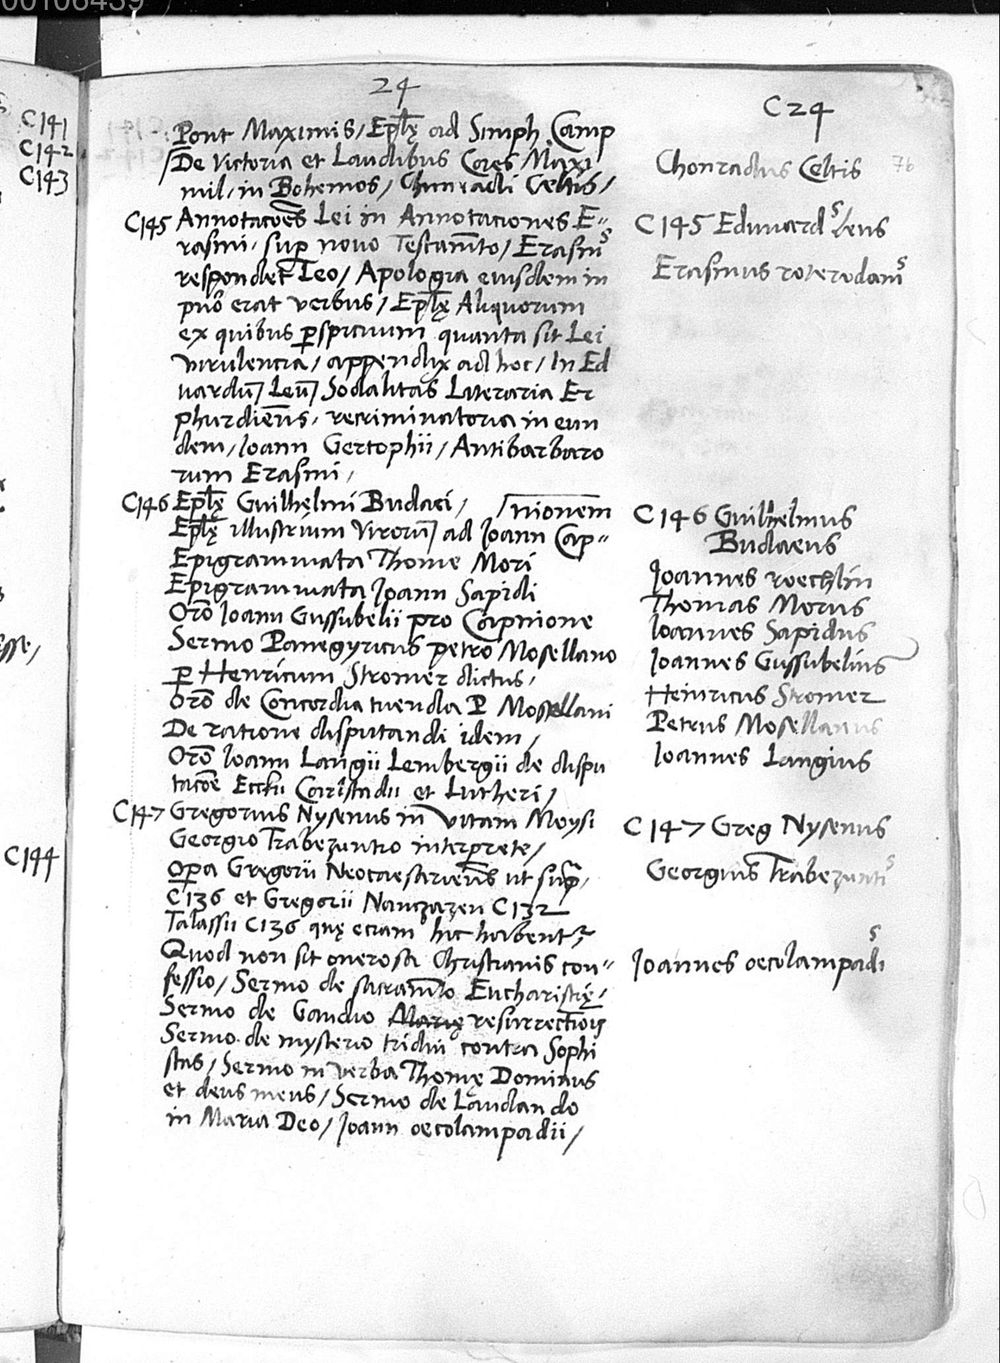 00106439
24
C24
C141
C142
C143
C144
esse/
Pont Maximis/ Eplę ad Simph Camp
De Victoria et Laudibus Caes Maxi
mil/ in Bohemos/ Chunradi Celtis/
C145 Annotatoēs Lei in Annotationes E=
rasmi/ sup novo Testamto/ Erasmꝰ
respondet Leo/ Apologia eiusdem in
pnō erat verbus/ Eplę Aliquorum
ex quibus ꝑspicuum quanta sit Lei
virulencia/ appendix ad hoc/ In Ed
uardū Leū Sodalitas Literaria Er
phurdieñs/ recriminatoria in eun
dem/ Ioann Gertophii/ Antibarbaro
rum Erasmi/
C146 Eplę Guilhelmi Budaei/ nionem
Eplę illustrium Virorū ad Ioann Cap=
Epigrammata Thome Mori
Epigrammata Ioann Sapidi
Orō Ioann Gussubelii pro Capnione
Sermo Panegyricus petro Mosellano
ꝑ Henricum Stromer dictus/
Orō de Concordia tuenda P Mosellani
De ratione disputandi idem/
Orō Ioann Langii Lembergii de dispu
tacōe Eckii Carlstadii et Lutheri/
C147 Gregorius Nysenus in Vitam Moysi
Georgio Trabezuntio interprete/
Opa Gregorii Neocaesarieñs ut supª/
C136 et Gregorii Nanzazeu C132
Talassii C136 quę eciam hic habentʳ
Quod non sit onerosa Christianis con=
fessio/ Sermo de sacramto Eucharistię/
Sermo de Gaudio Marię resurrectiois
Sermo de mysterio tridui contra Sophi
stas/ Sermo in verba Thomę Dominus
et deus meus/ Sermo de Laudando
in Maria Deo/ Ioann oecolampadii/
Chonradus Celtis
76
C145 Eduuardꝰ Leus
Erasmus roterodamꝰ
C146 Guilhelmus
Budaeus
Joannes roechlin
Thomas Morus
Ioannes Sapidus
Joannes Gussubelius
Heinricus Stromer
Petrus Mosellanus
Ioannes Langius
C147 Greg Nysenus
Georgius Trabezuntiꝰ
Joannes oecolampadiꝰ